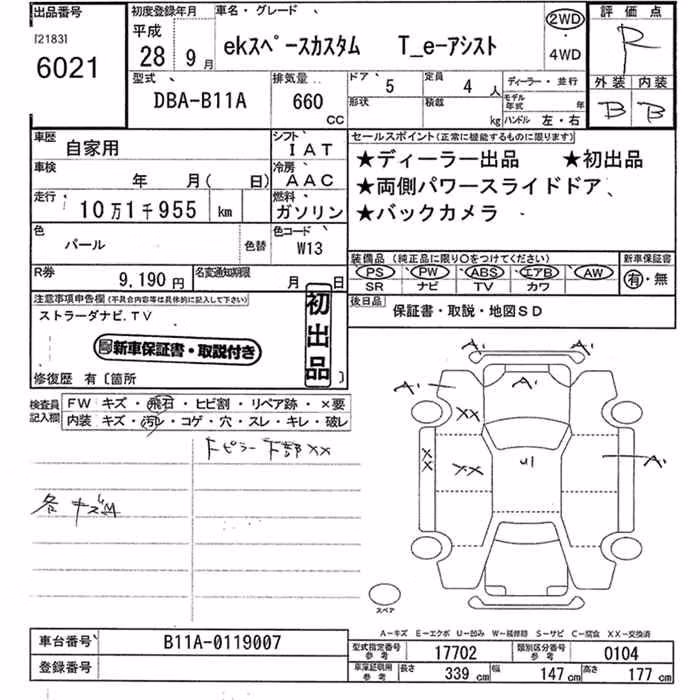 出品番号 初度登録年月 車名・グレード 評価点
[2183] 平成 2WD R
6021 28年 9月 ekスペースカスタム T_e-アシスト ・ 4WD
型式 排気量 ドア 5 定員 4人 ディーラー・並行 外装 内装
DBA-B11A 660 CC 形状 積載 kg モデル年式 年 ハンドル 左・右 B B
車歴 自家用 シフト IAT セールスポイント(正常に機能するものに限ります)
車検 年 月( 日) 冷房 AAC ★ディーラー出品 ★初出品
走行 10万1千955 km 燃料 ガソリン ★両側パワースライドドア、
★バックカメラ
色 パール 色替 色コード W13
装備品(純正品に限り○をつけてください) 新車保証書
R券 9,190円 名変通知期限 月 日 PS PW ABS エアB AW 有・無
SR ナビ TV カワ
注意事項申告欄(不具合内容等は具体的に記入して下さい) 後日品 保証書・取説・地図SD
ストラーダナビ.TV
初出品
新車保証書・取説付き
修復歴 有〔箇所 〕
検査員記入欄 FW キズ・飛石・ヒビ割・リペア跡・×要
内装 キズ・汚レ・コゲ・穴・スレ・キレ・破レ
A' A'
A' A' A'
XX
XX XX A'
U1
ドピラー下部XX
各キズ凹
スペア
A−キズ E−エクボ U−凹み W−補修跡 S−サビ C−腐食 XX−交換済
車台番号 B11A-0119007 型式指定番号 参考 17702 類別区分番号 参考 0104
登録番号 車庫証明用 参考 長さ 339cm 幅 147cm 高さ 177cm